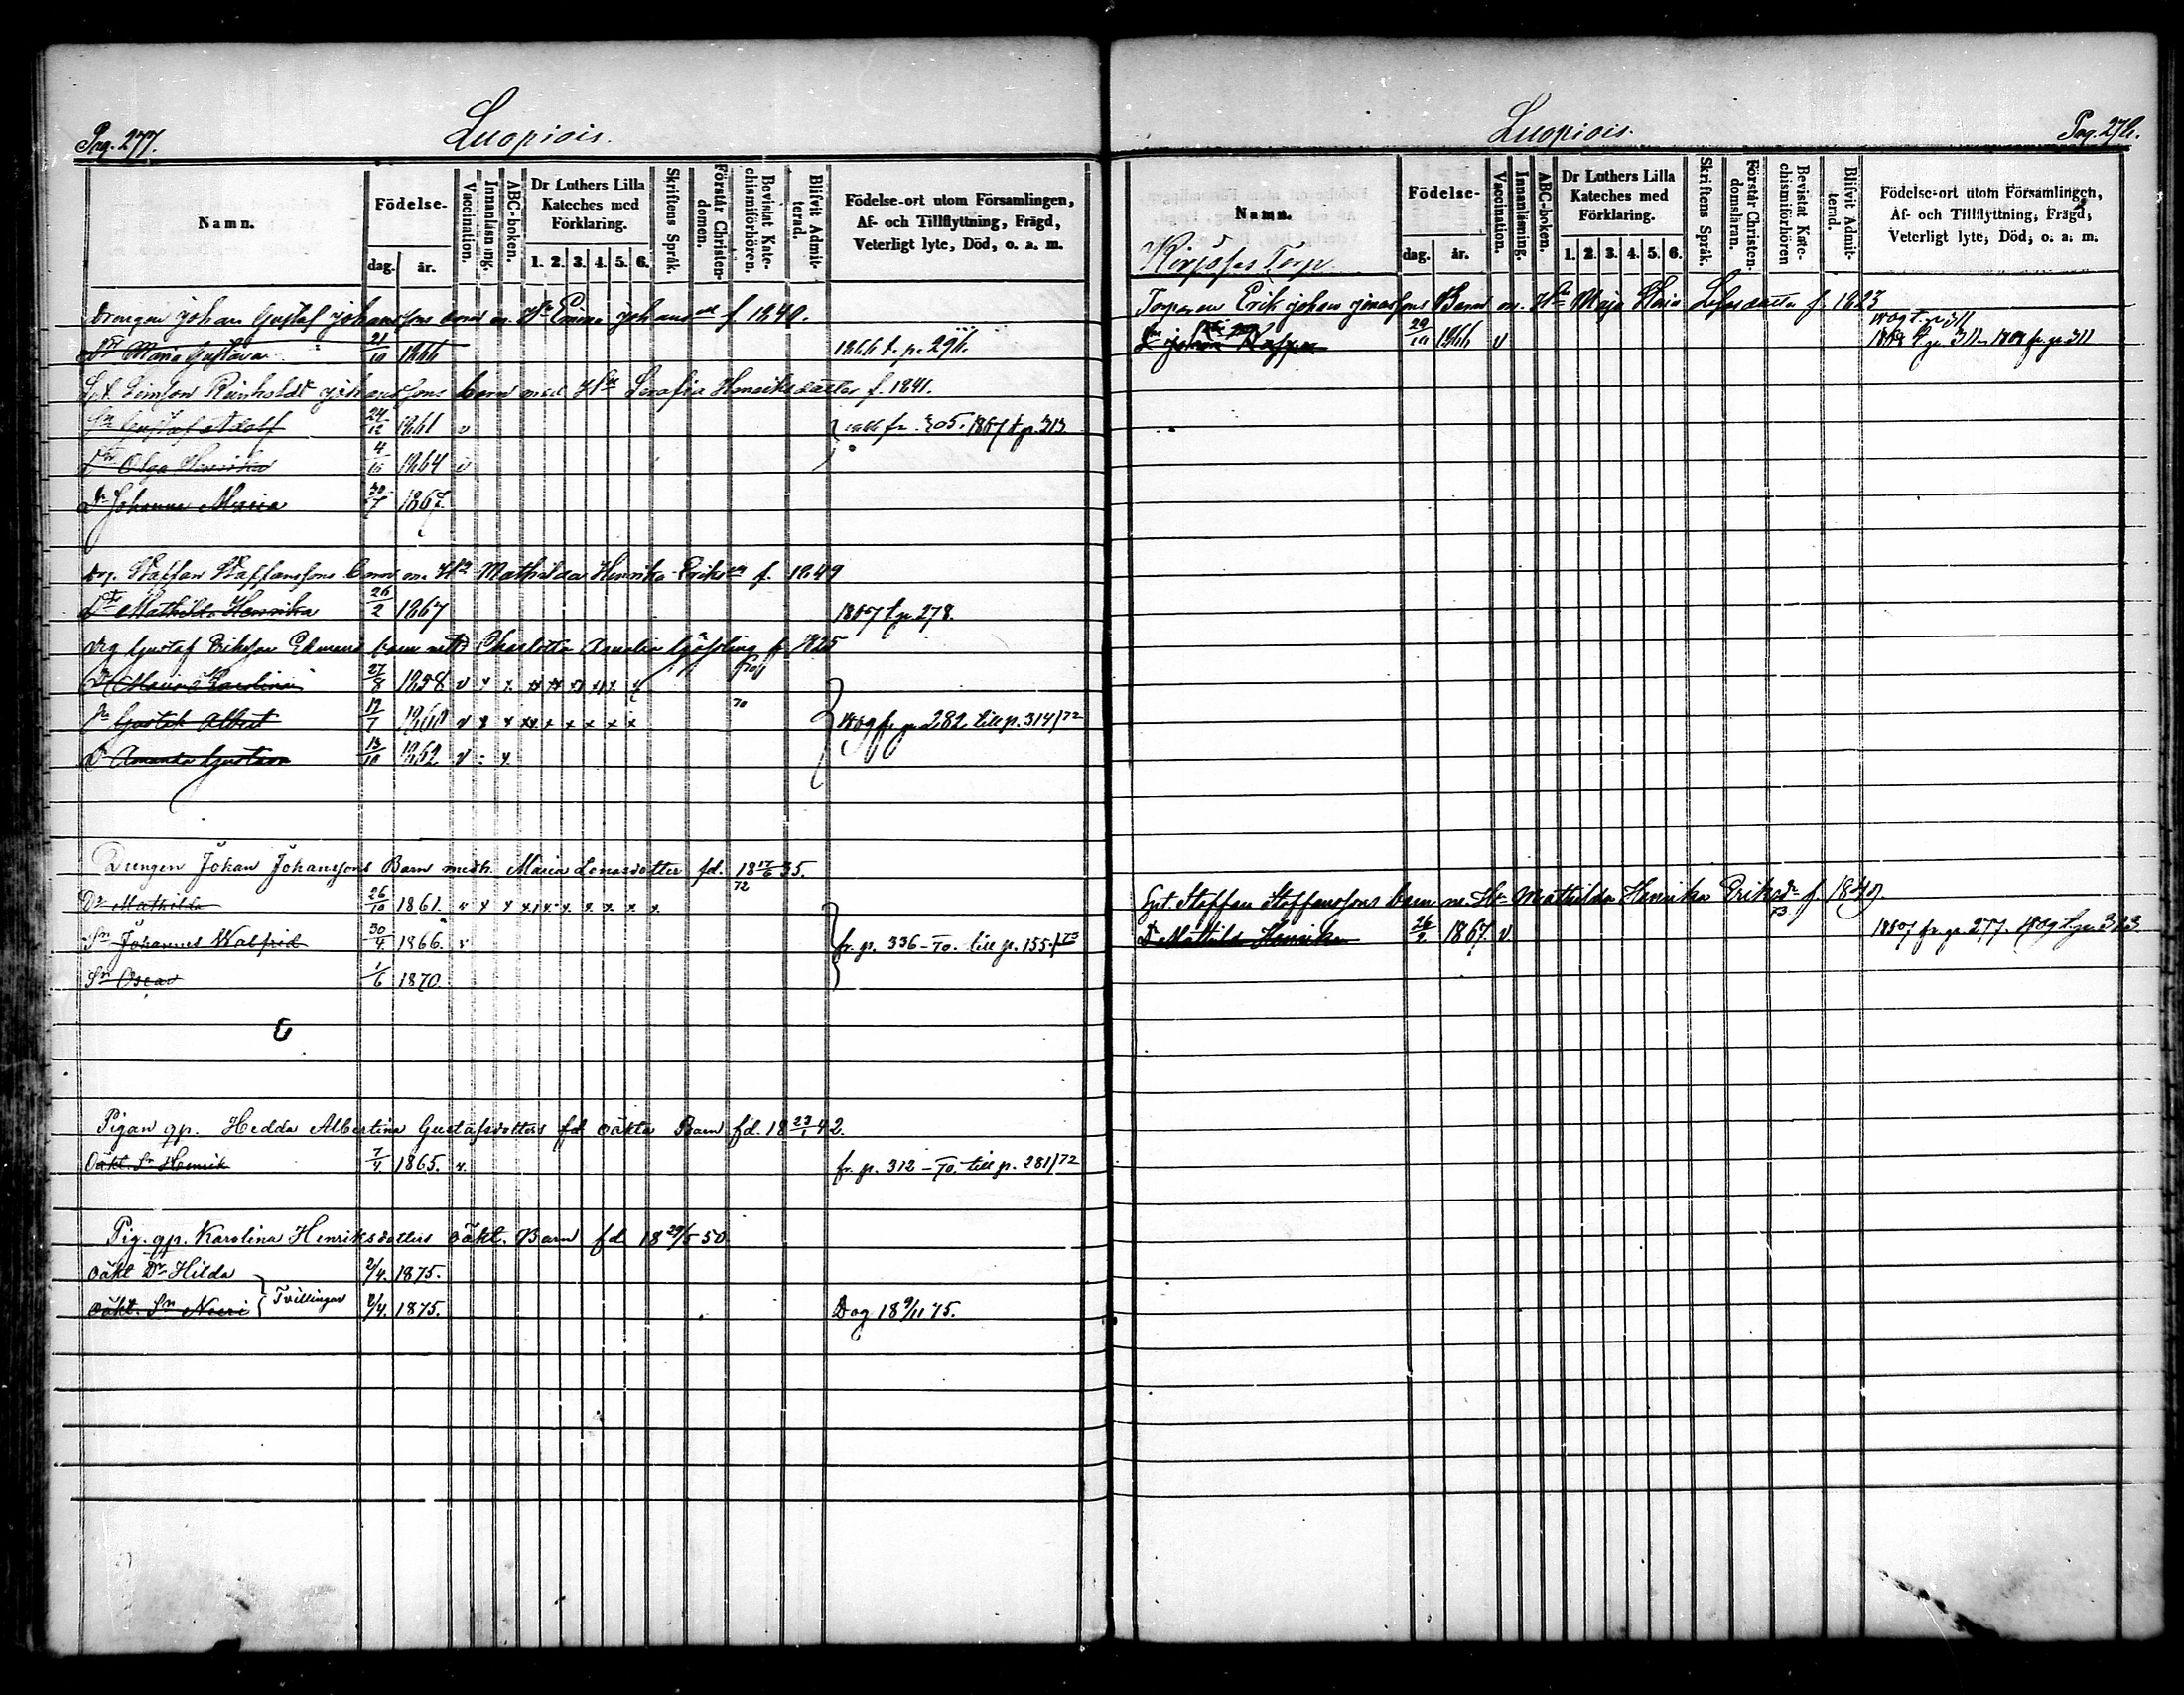 Pag. 277.
Luopiois.
Namn.
Födelse-
dag.
år.
Vaccination.
Innanläsning.
ABC-boken.
Dr Luthers Lilla Kateches med Förklaring.
1. 2. 3. 4. 5. 6.
Skriftens Språk.
Förstår Christendomen.
Bevistat Katechismiförhören.
Blifvit Admitterad.
Födelse-ort utom Församlingen, Af- och Tillflyttning, Frägd, Veterligt lyte, Död, o. a. m.
Drengen Johan Gustaf Johanssons barn m. Hu Emma Johansdr f. 1840.
Dr Maria Gustava 21/10 1866 1866 t. p. 296.
Simson Reinholdt Johanssons barn med Hu Serafia Henriksdotter f. 1841.
Sn Gustaf Adolf 24/12 1861 v 1866 fr. 305. 1867 t. p. 313
Dr Olga Henrika 4/10 1864 v
Dr Johanna Maria 30/7 1867.
Drg. Staffan Staffanssons barn m. Hu Mathilda Henrika Eriksdr f. 1849
Dr Mathilda Henrika 26/2 1867 1867 t. p. 278.
Drg Gustaf Eriksson Ekmans barn med Charlotta Amalia f 1825
Dr Maria Karolina 27/8 1858 v x x xx xx xx xx x x
Sn Gustaf Albert 12/7 1860 v x x xx x x x x x 70 fr. p. 282. till p. 314/72
Dr Amanda Gustava 13/10 1862 v x
Drengen Johan Johanssons Barn med h. Maria Lenasdotter fd. 18 17/6 35.
Dr Mathilda 26/10 1861. v x x x x x x x x x 72
Sn Johannes Walfrid 30/4 1866. v fr. p. 336 – 70. till p. 155./73
Sn Oscar 1/6 1870.
Pigan qp. Hedda Albertina Gustafsdotters fd oäkta Barn fd. 18 23/1 42.
Oäkt. Sn Henrik 7/4 1865. v. fr. p. 312 – 70. till p. 281/72
Pig. qp. Karolina Henriksdotters oäkt. Barn fd 18 29/5 50
oäkt Dr Hilda 2/4. 1875.
Tvillingar
oäkt. Sn 2/4. 1875. Dog 18 9/11 75.
Luopiois.
Pag. 278.
Namn.
Födelse-
dag.
år.
Vaccination.
Innanläsning.
ABC-boken.
Dr Luthers Lilla Kateches med Förklaring.
1. 2. 3. 4. 5. 6.
Skriftens Språk.
Förstår Christendomsläran.
Bevistat Katechismiförhören
Blifvit Admitterad.
Födelse-ort utom Församlingen, Af- och Tillflyttning, Frägd, Veterligt lyte, Död, o. a. m.
Torp.
Torparen Erik Johan Barn m. Hu Maja Stina f. 1823
Sn Johan Kasper 29/10 1866 v t. p. 311 fr. p. 311
Staffan Staffanssons barn m. Hu Mathilda Henrika Eriksdr f. 1849.
Dr Mathilda Henrika 26/2 1867. v 73. 1867 fr. p. 277. t. p. 323